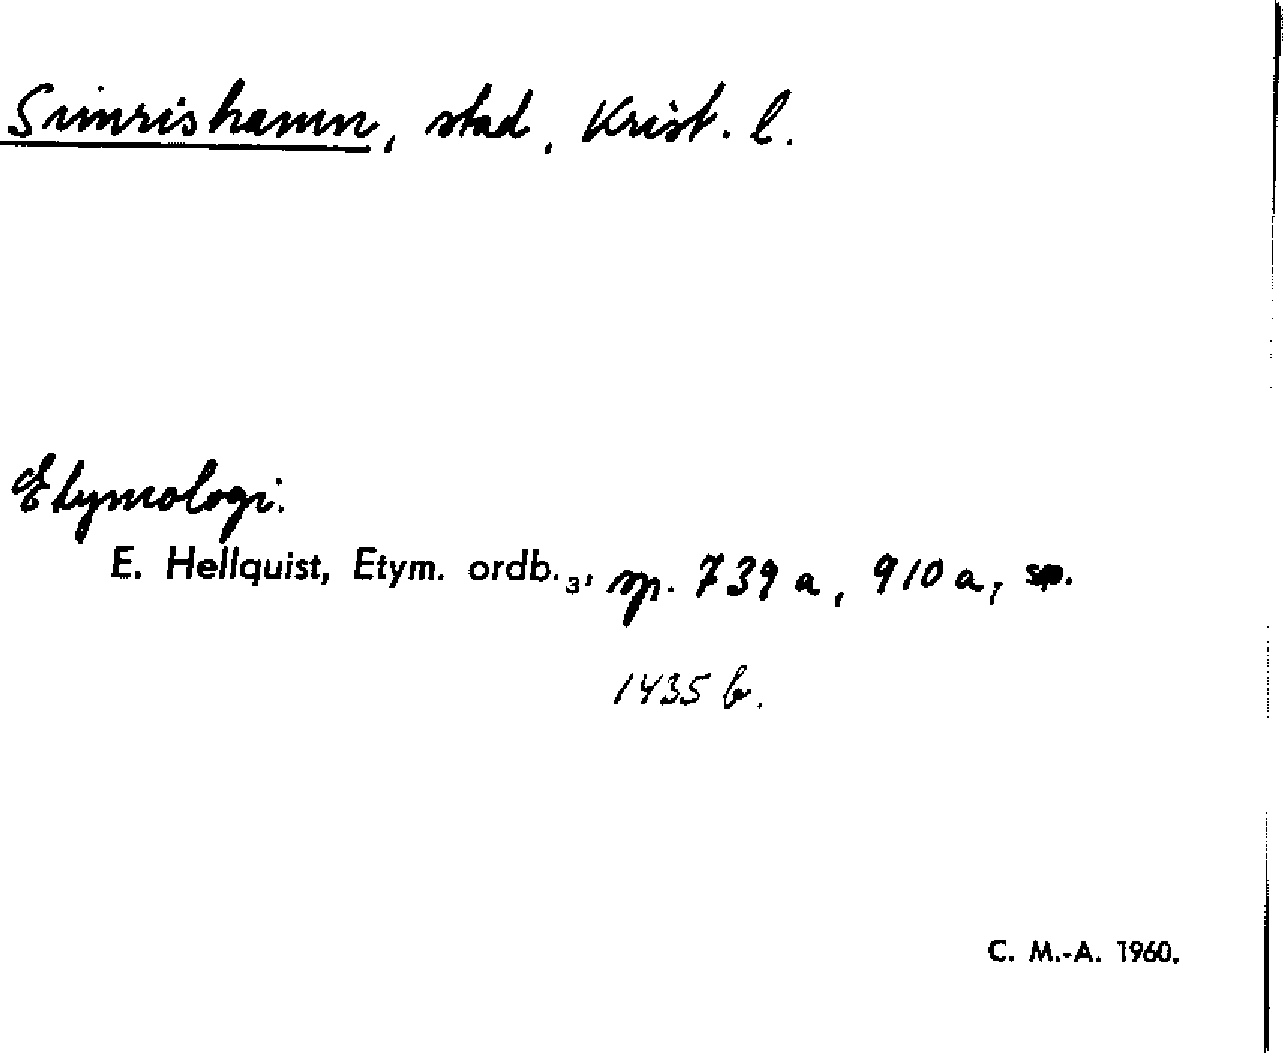 Simrishamn, stad, Krist. l.
Etymologi.
E. Hellquist, Etym. ordb.₃, sp. 739 a, 910 a, sp.
1435 b.
C. M.-A. 1960.